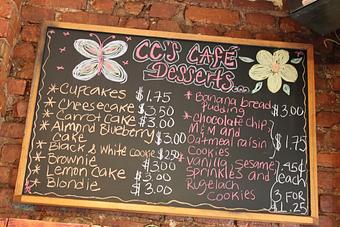 CC'S CAFÉ
Desserts...
* Cupcakes $1.75
* Cheesecake $3.50
* Carrot Cake $3.00
* Almond Blueberry
Cake $3.00
* Black & White Cookie $2.50
* Brownie $3.00
* Lemon Cake $3.00
* Blondie $3.00
* Banana bread
Pudding $3.00
* chocolate chip,
M&M and
Oatmeal raisin
Cookies $1.75
* Vanilla, sesame,
Sprinkles and
Rugelach
Cookies
.45¢
each
3 FOR
$1.25